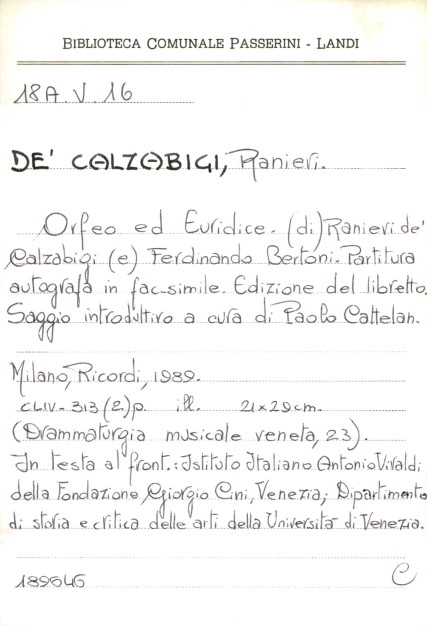 BIBLIOTECA COMUNALE PASSERINI - LANDI
18A. V. 16
DE' CALZABIGI, Ranieri.
Orfeo ed Euridice. (di) Ranieri de'
Calzabigi (e) Ferdinando Bertoni. Partitura
autografa in fac-simile. Edizione del libretto.
Saggio introduttivo a cura di Paolo Cattelan.
Milano, Ricordi, 1989.
CLIV-313 (2) p. ill. 21x29cm.
(Drammaturgia musicale veneta, 23).
In testa al front.: Istituto Italiano Antonio Vivaldi
della Fondazione Giorgio Cini, Venezia; Dipartimento
di storia e critica delle arti della Università di Venezia.
189646 C